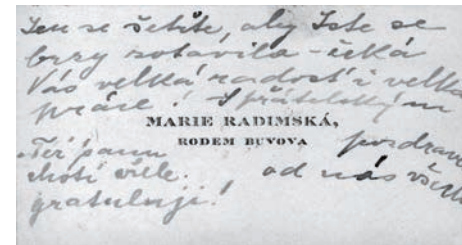 Jen se šetřte, aby Jste se
brzy zotavila – čeká
Vás velká radost i velká
práce! S přátelským
MARIE RADIMSKÁ,
RODEM BUVOVA
pozdravem
Též panu
choti vřele od nás všech
gratuluji!